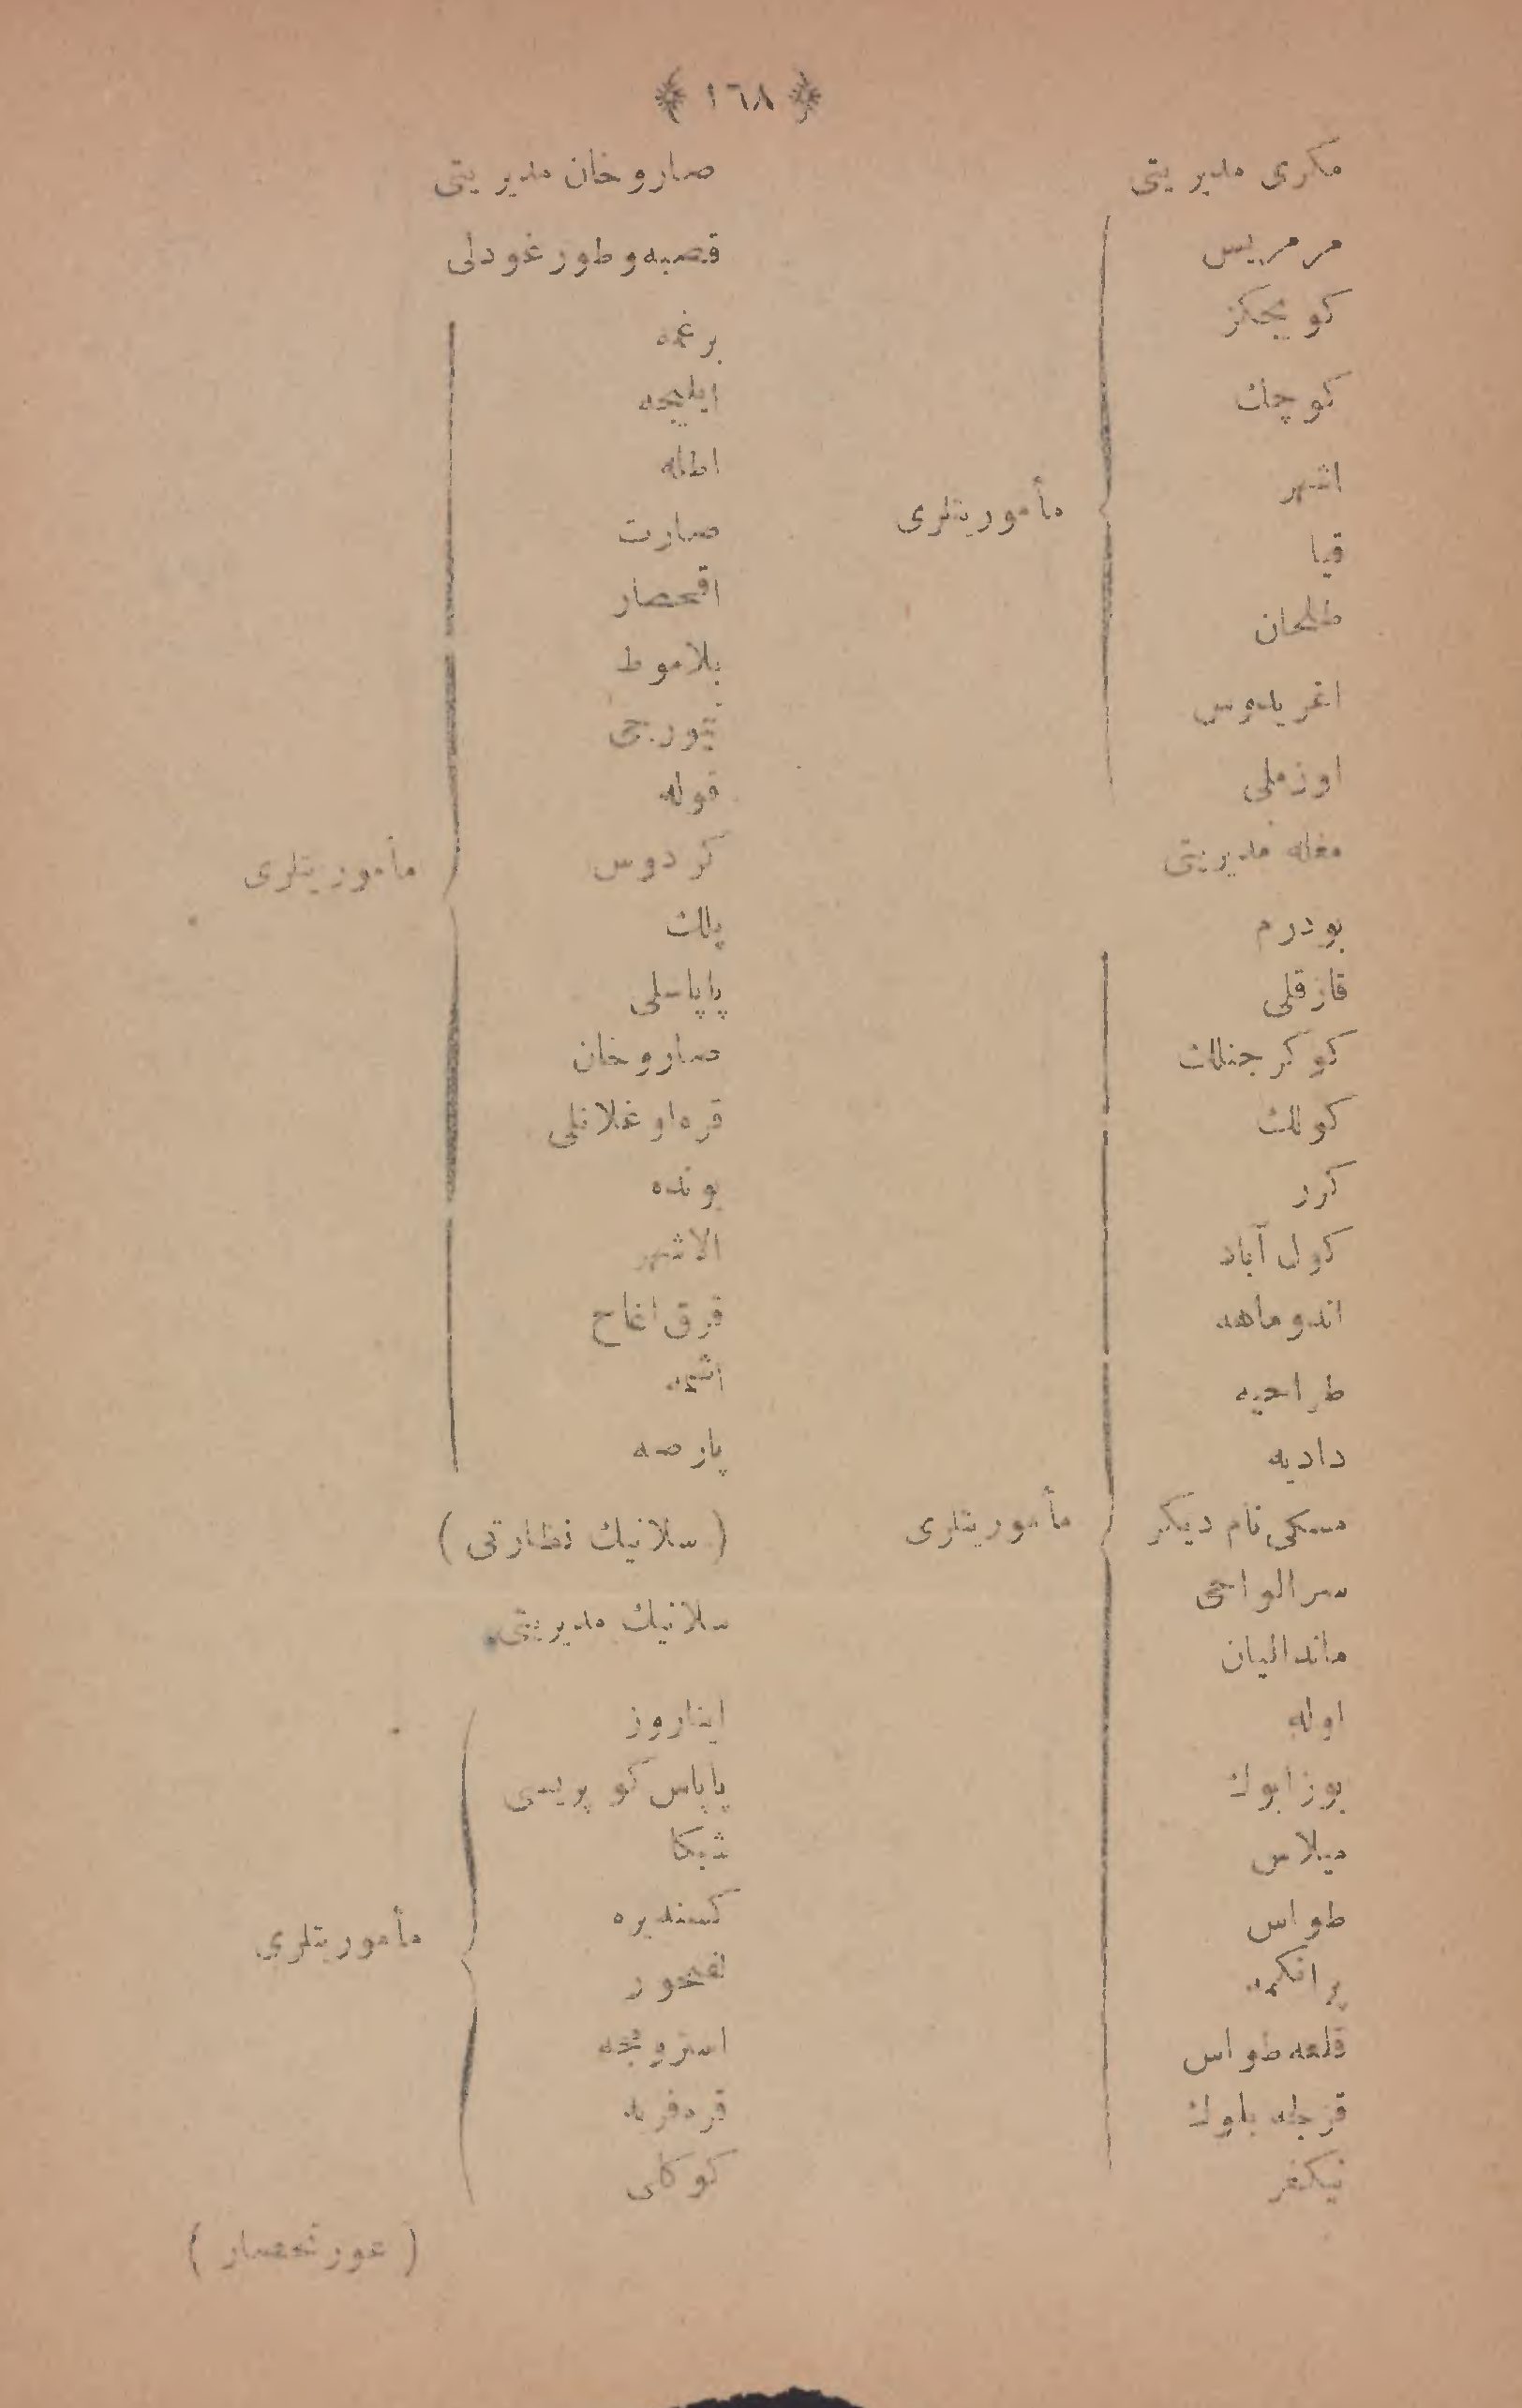 ﴿ ١٦٨ ﴾
مكری مدیریتی
مرمریس
كویجكز
كوچك
اشهر
قیا
طلحان
اغریدوس
اوزملی
مأموریتلری
مغله مدیریتی
بودرم
قازقلی
كوكرجنلك
كوللك
كرر
كول آباد
اندوماهه
طراحیه
دادیه
مسكی نام دیكر
سرالواجی
ماندالیان
اوله
بوزابوك
میلاس
طواس
پرانكمه
قلعه طواس
قزجله بلوك
نیكفر
مأموریتلری
صاروخان مدیریتی
قصبه و طورغودلی
برغمه
ایلیجه
اطله
صارت
اقحصار
بلاموط
قوله
كردوس
پللك
پاپاسلی
صاروخان
قره اوغلانلی
بونده
الاشهر
قرق اغاج
اشمه
پارصه
مأموریتلری
( سلانیك نظارتی )
سلانیك مدیریتی
ایناروز
پاپاس كوپریسی
شبكا
كسندیره
لفحور
استرومجه
قره فریه
كوكلی
مأموریتلری
( عورتحصار )